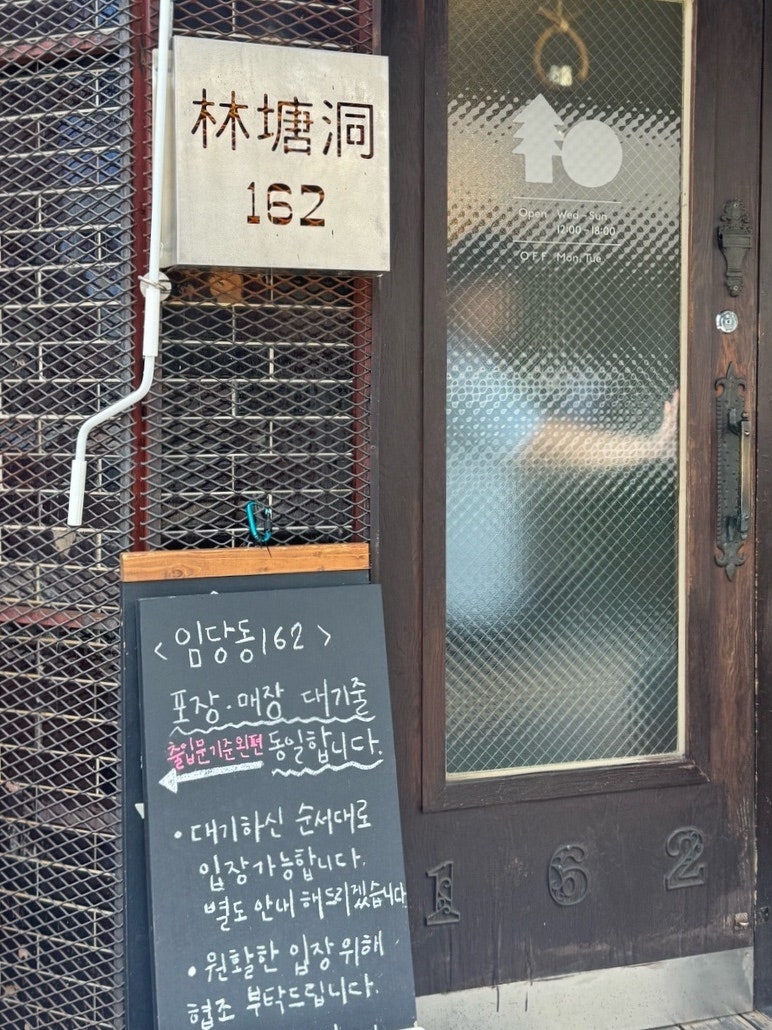 林塘洞
162
Open Wed - Sun
12:00 - 18:00
OFF Mon, Tue
< 임당동162 >
포장·매장 대기줄
출입문기준왼편 동일합니다.
• 대기하신 순서대로
입장가능합니다.
별도 안내 해드리겠습니다
• 원활한 입장 위해
협조 부탁드립니다.
162